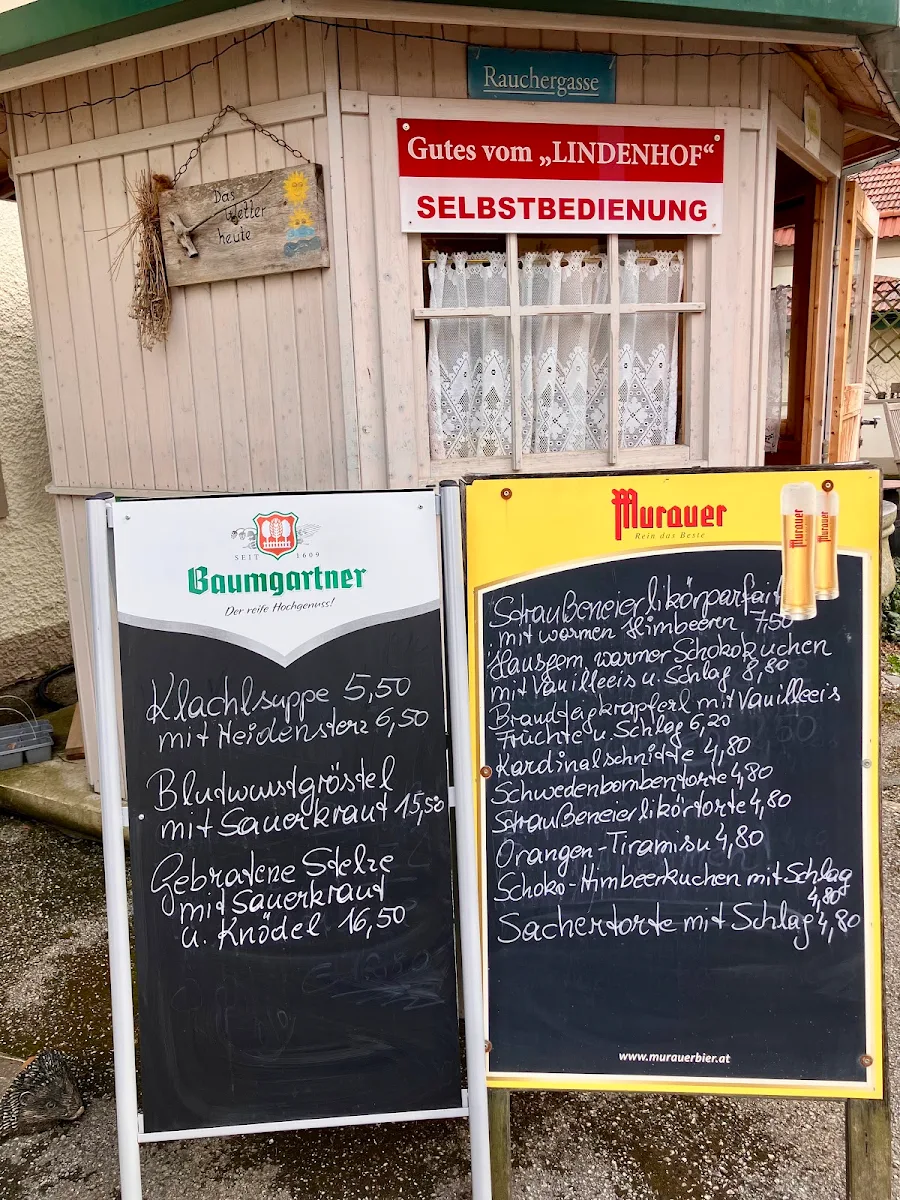 Rauchergasse
Gutes vom „LINDENHOF“
SELBSTBEDIENUNG
Das
Wetter
heute
SEIT 1609
Baumgartner
Der reife Hochgenuss!
Klachlsuppe 5,50
mit Heidensterz 6,50
Blutwurstgröstel
mit Sauerkraut 15,50
Gebratene Stelze
mit Sauerkraut
u. Knödel 16,50
Murauer
Rein das Beste
Murauer
Murauer
Straußeneierlikörparfait
mit warmen Himbeeren 7,50
Hausgem. warmer Schokokuchen
mit Vanilleeis u. Schlag 8,80
Brandteigkrapferl mit Vanilleeis
Früchte u. Schlag 6,20
Kardinalschnitte 4,80
Schwedenbombentorte 4,80
Straußeneierlikörtorte 4,80
Orangen-Tiramisu 4,80
Schoko-Himbeerkuchen mit Schlag
4,80
Sachertorte mit Schlag 4,80
www.murauerbier.at